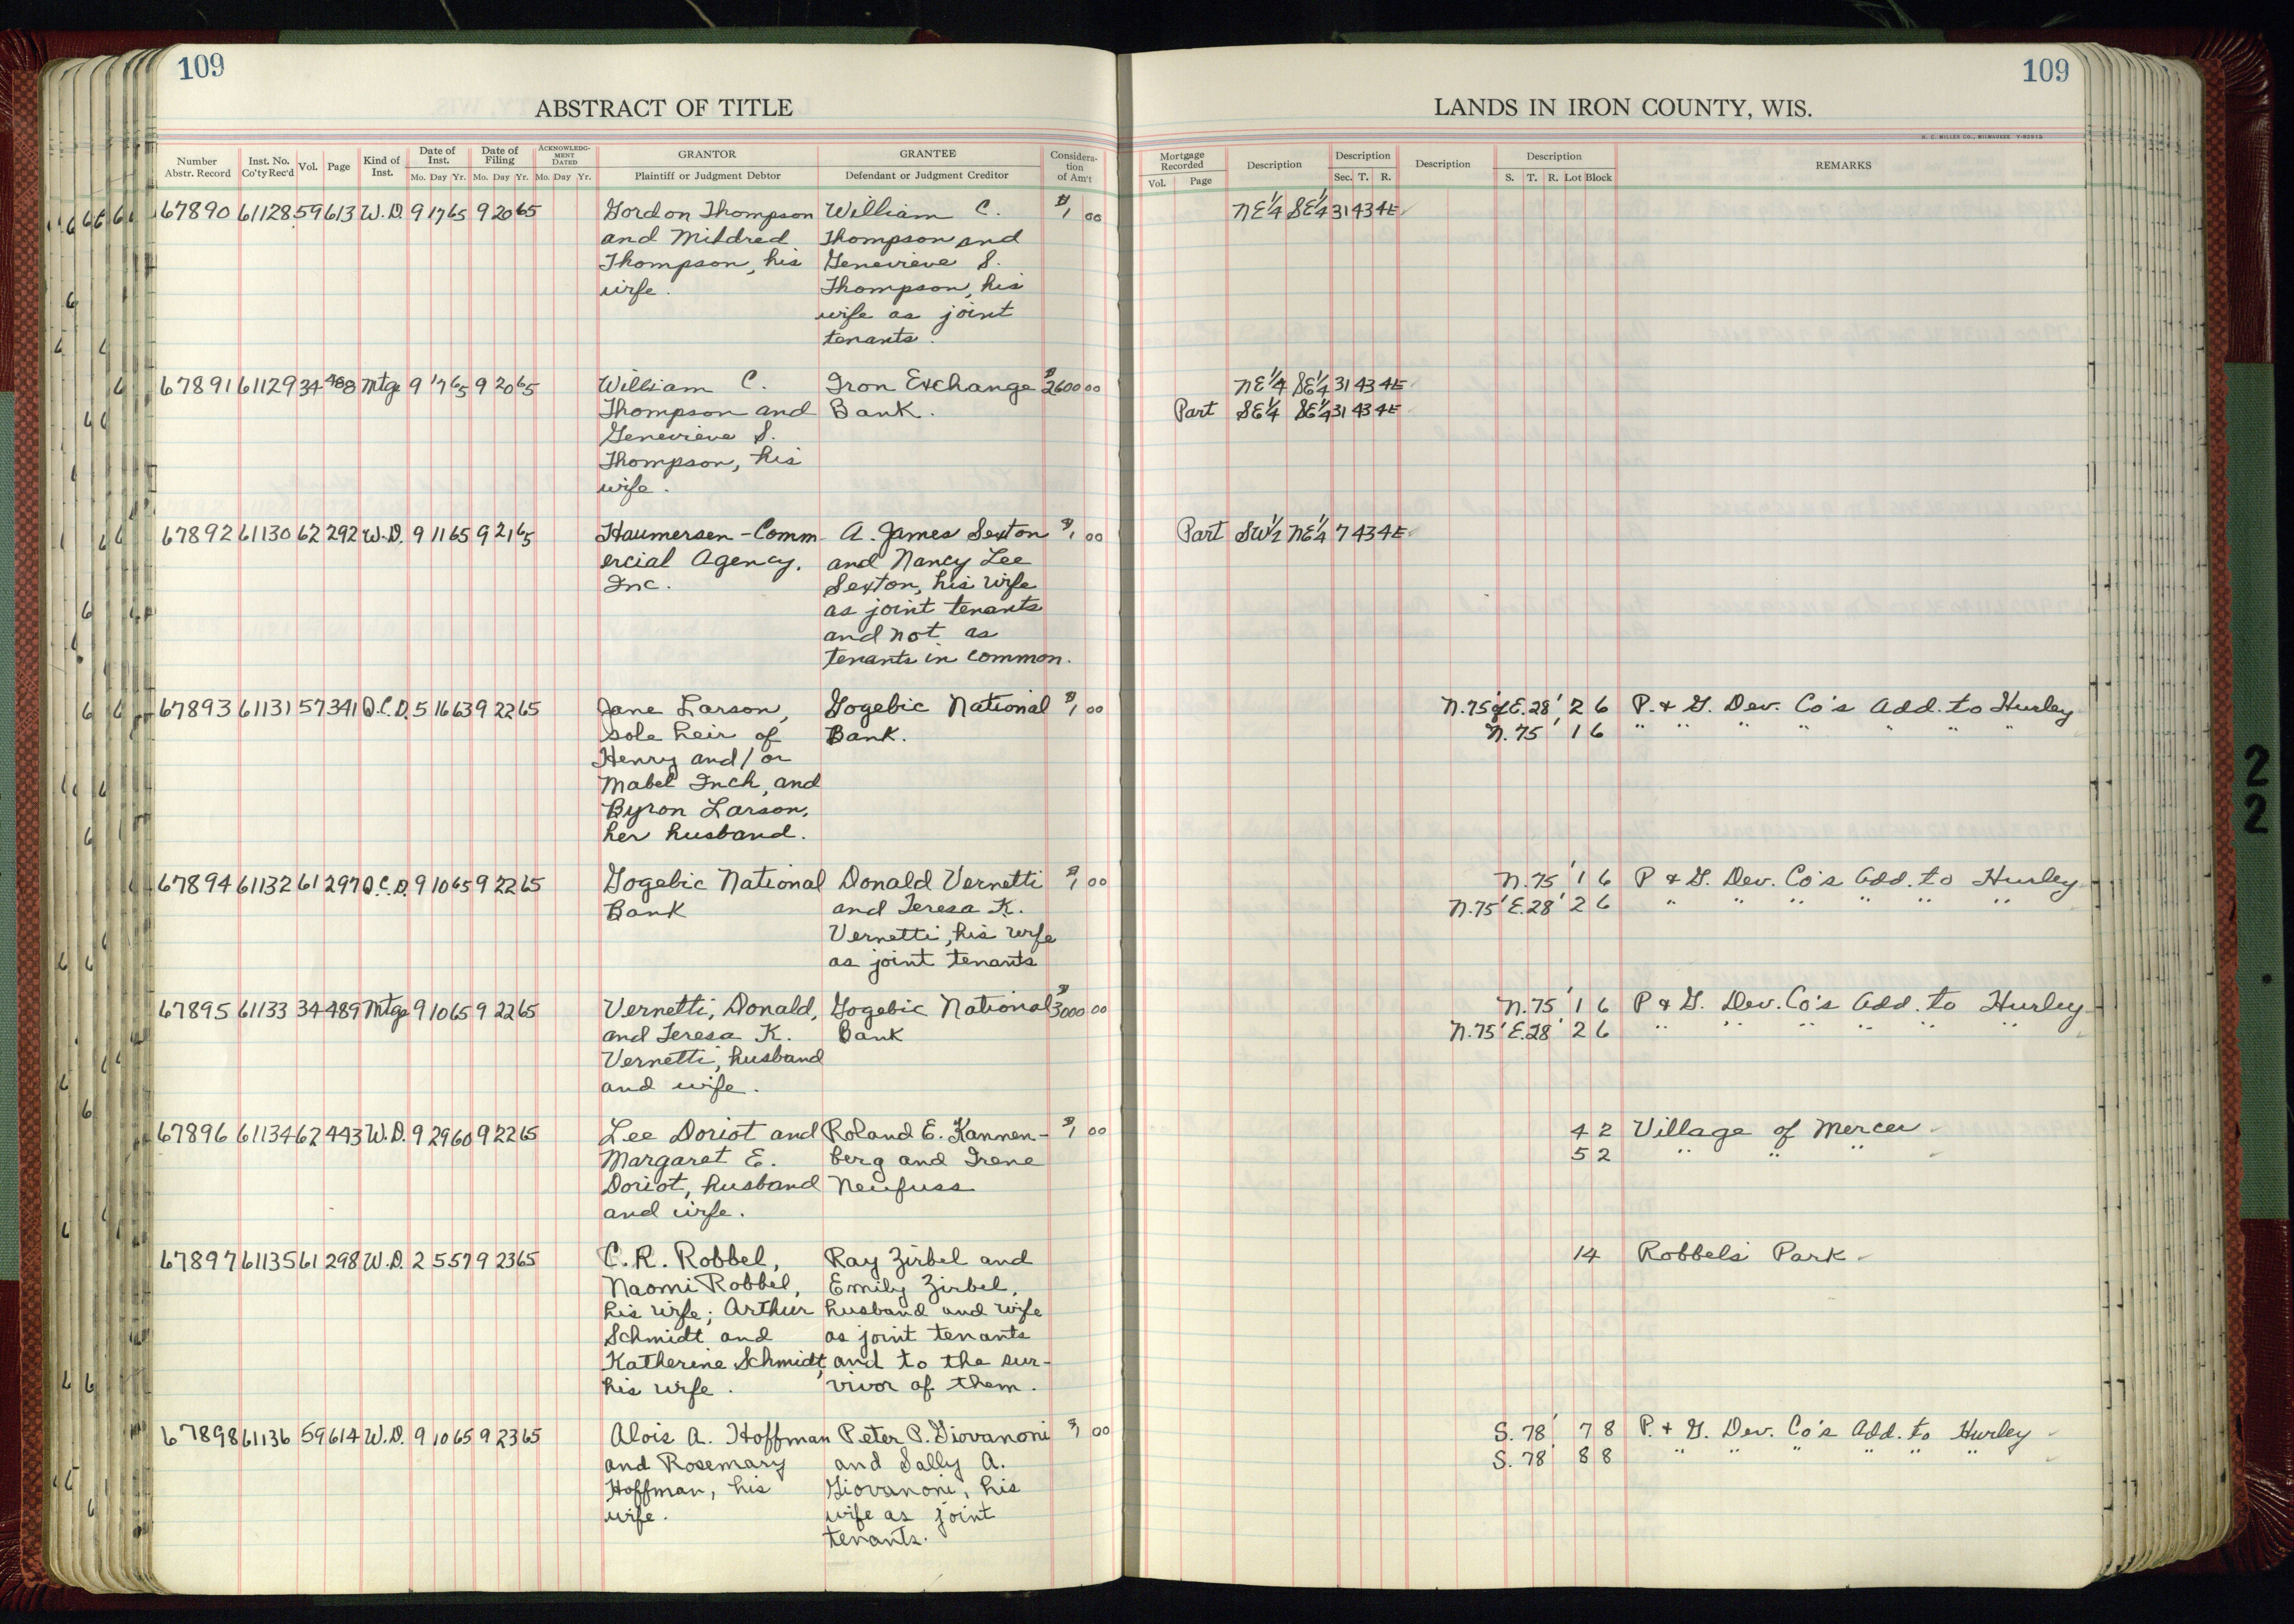 109
109
ABSTRACT OF TITLE
LANDS IN IRON COUNTY, WIS.
H. C. MILLER CO., MILWAUKEE
Number Abstr. Record Inst. No. Co'ty Rec'd Vol. Page Kind of Inst. Date of Inst. Mo. Day Yr. Date of Filing Mo. Day Yr. ACKNOWLEDG-MENT DATED Mo. Day Yr. GRANTOR Plaintiff or Judgment Debtor GRANTEE Defendant or Judgment Creditor Considera-tion of Am't
Mortgage Recorded Vol. Page Description Description Sec. T. R. Description Description S. T. R. Lot Block REMARKS
67890 61128 59 613 W.D. 9 17 65 9 20 65 Gordon Thompson William C. $1 00 NE1/4 SE1/4 31 43 4E
and Mildred Thompson and
Thompson, his Genevieve S.
wife. Thompson, his
wife as joint
tenants.
67891 61129 34 488 Mtge 9 17 65 9 20 65 William C. Iron Exchange $2600 00 NE1/4 SE1/4 31 43 4E
Thompson and Bank. Part SE1/4 SE1/4 31 43 4E
Genevieve S.
Thompson, his
wife.
67892 61130 62 292 W.D. 9 11 65 9 21 65 Haumersen-Comm- A. James Sexton $1 00 Part SW1/2 NE1/4 7 43 4E
ercial Agency, and Nancy Lee
Inc. Sexton, his wife
as joint tenants
and not as
tenants in common.
67893 61131 57 341 Q.C.D. 5 16 63 9 22 65 Jane Larson, Gogebic National $1 00 N.75' of E.28' 2 6 P. & G. Dev. Co's Add. to Hurley
sole heir of Bank. N. 75' 1 6 " " " " " " "
Henry and/or
Mabel Inch, and
Byron Larson,
her husband.
67894 61132 61 297 Q.C.D. 9 10 65 9 22 65 Gogebic National Donald Vernetti $1 00 N.75' 1 6 P & G. Dev. Co's Add. to Hurley
Bank and Teresa K. N.75' E.28' 2 6 " " " " " "
Vernetti, his wife
as joint tenants
67895 61133 34 489 Mtge 9 10 65 9 22 65 Vernetti, Donald, Gogebic National $3000 00 N.75' 1 6 P & G. Dev. Co's Add. to Hurley
and Teresa K. Bank N.75' E.28' 2 6 " " " " " "
Vernetti, husband
and wife.
67896 61134 62 443 W.D. 9 29 60 9 22 65 Lee Doriot and Roland E. Kannen- $1 00 4 2 Village of Mercer
Margaret E. berg and Irene 5 2 " " "
Doriot, husband Neufuss
and wife.
67897 61135 61 298 W.D. 2 5 57 9 23 65 C. R. Robbel, Ray Zirbel and 14 Robbels Park
Naomi Robbel, Emily Zirbel,
his wife; Arthur husband and wife
Schmidt and as joint tenants
Katherine Schmidt, and to the sur-
his wife. vivor of them.
67898 61136 59 614 W.D. 9 10 65 9 23 65 Alois A. Hoffman Peter P. Giovanoni $1 00 S. 78' 7 8 P. & G. Dev. Co's Add. to Hurley
and Rosemary and Sally A. S. 78' 8 8 " " " " " "
Hoffman, his Giovanoni, his
wife. wife as joint
tenants.
2
2